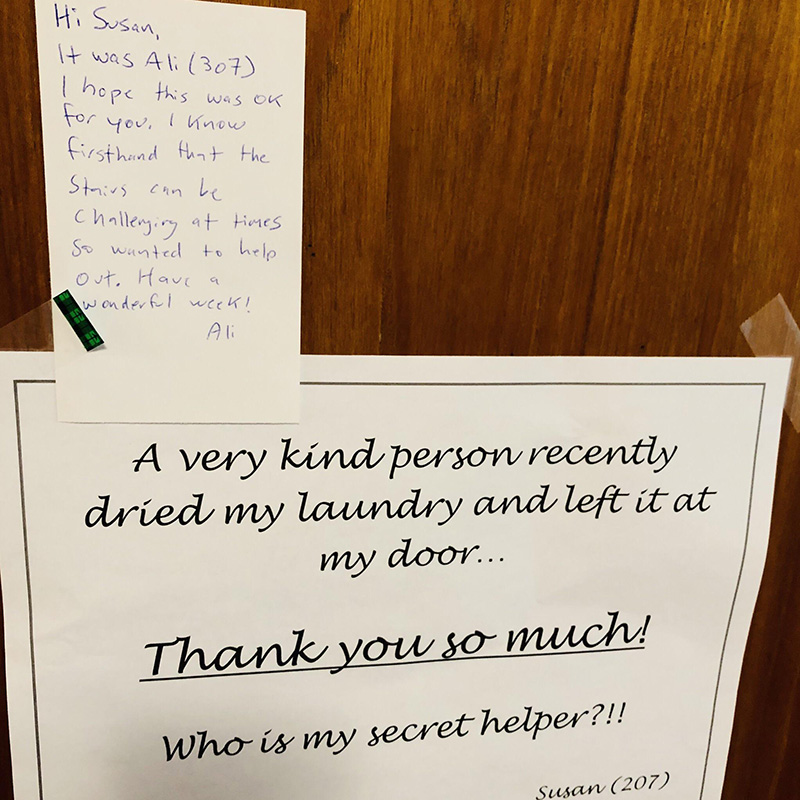 Hi Susan,
It was Ali (307)
I hope this was ok
for you. I know
firsthand that the
stairs can be
challenging at times
so wanted to help
out. Have a
wonderful week!
Ali
A very kind person recently
dried my laundry and left it at
my door...
Thank you so much!
Who is my secret helper?!!
Susan (207)